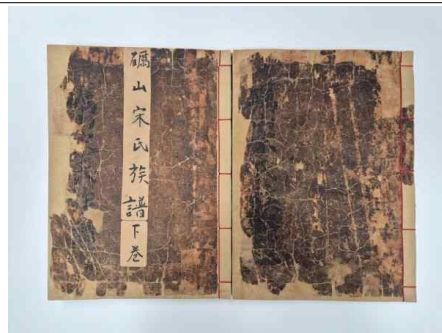 礪山宋氏族譜下卷